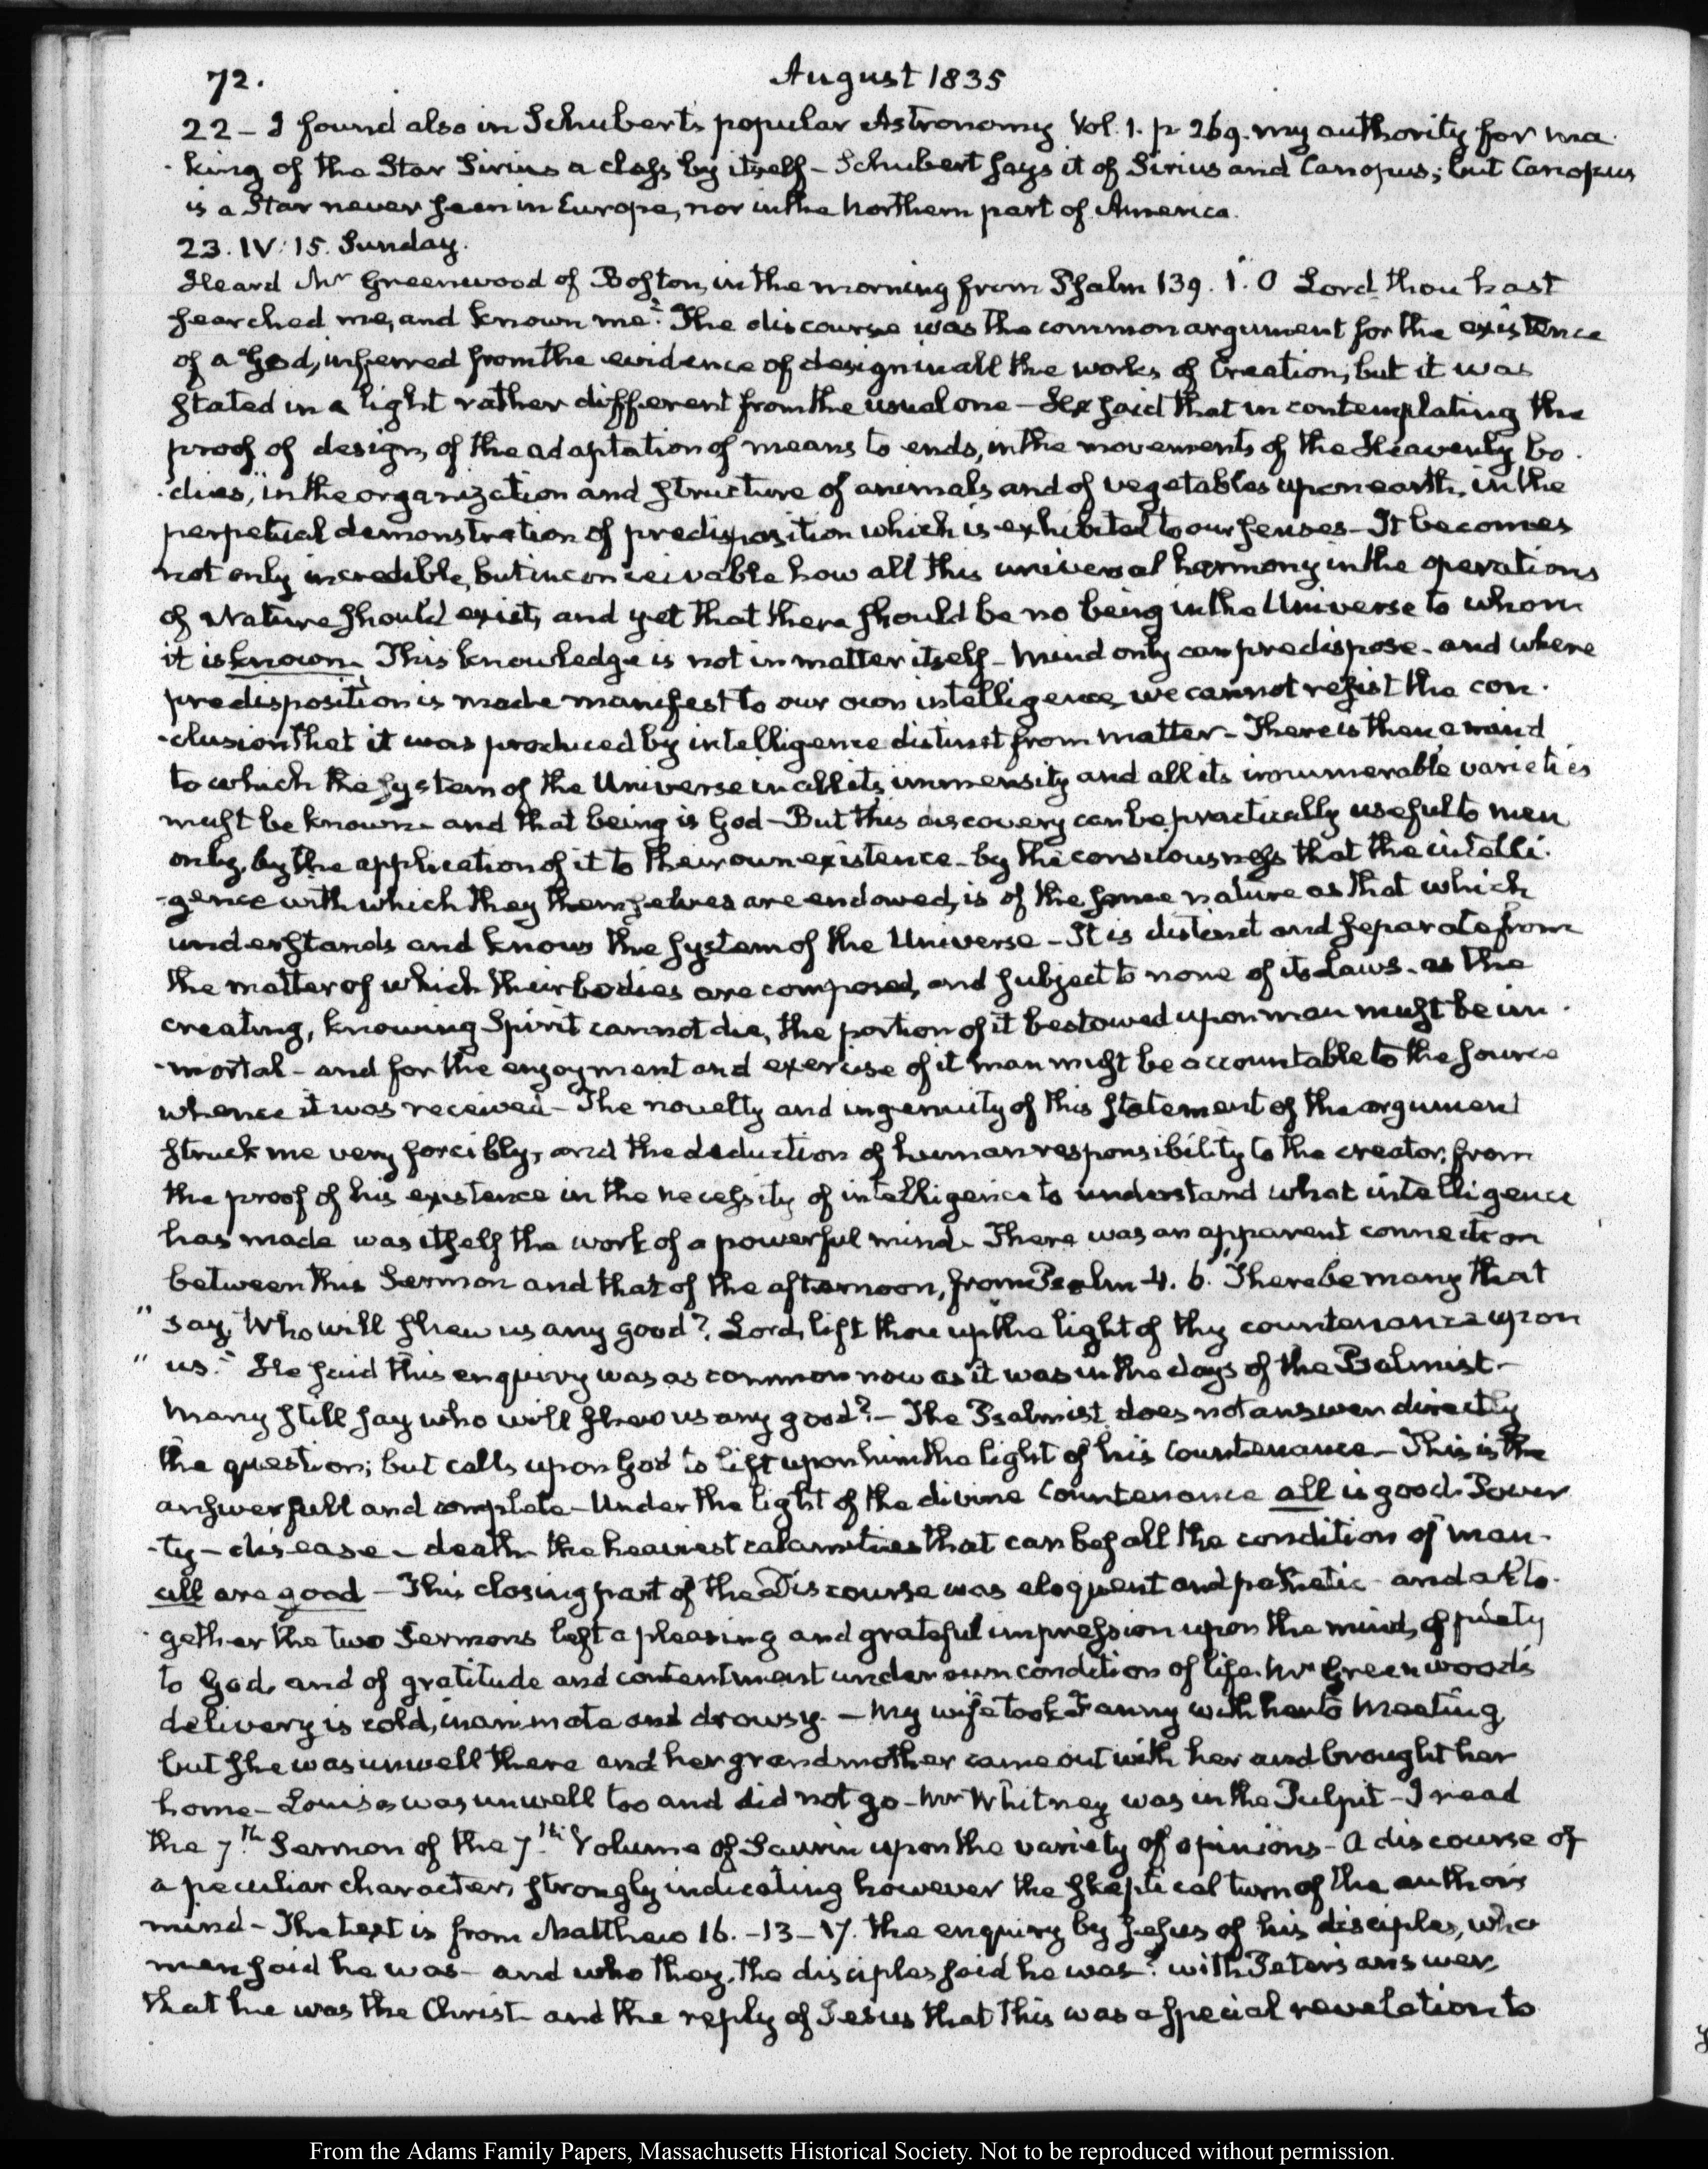 72. August 1835
22 - I found also in Schubert's popular Astronomy Vol. 1. p 269. my authority for ma-
-king of the Star Sirius a class by itself - Schubert says it of Sirius and Canopus; but Canopus
is a Star never seen in Europe, nor in the Northern part of America.
23. IV: 15. Sunday.
Heard Mr Greenwood of Boston, in the morning from Psalm 139. 1. "O Lord thou hast
searched me, and known me." The discourse was the common argument for the existence
of a God, inferred from the evidence of design in all the works of Creation, but it was
stated in a light rather different from the usual one - He said that in contemplating the
proof of design, of the adaptation of means to ends, in the movements of the Heavenly bo-
-dies, in the organization and structure of animals and of vegetables upon earth, in the
perpetual demonstration of predisposition which is exhibited to our senses - It becomes
not only incredible, but inconceivable how all this universal harmony in the operations
of Nature should exist, and yet that there should be no being in the Universe to whom
it is known. This knowledge is not in matter itself - Mind only can predispose - and where
predisposition is made manifest to our own intelligence, we cannot resist the con-
-clusion that it was produced by intelligence distinct from matter - There is then a mind
to which the system of the Universe in all its immensity and all its innumerable varieties
must be known - and that being is God - But this discovery can be practically useful to men
only, by the application of it to their own existence - by the consciousness that the intelli-
-gence with which they themselves are endowed, is of the same nature as that which
understands and knows the system of the Universe - It is distinct and separate from
the matter of which their bodies are composed, and subject to none of its Laws - as the
creating, knowing Spirit cannot die, the portion of it bestowed upon man must be im-
-mortal - and for the enjoyment and exercise of it man must be accountable to the source
whence it was received - The novelty and ingenuity of this statement of the argument
struck me very forcibly, and the deduction of human responsibility to the creator, from
the proof of his existence in the necessity of intelligence to understand what intelligence
has made was itself the work of a powerful mind - There was an apparent connection
between this Sermon and that of the afternoon, from Psalm 4. 6. "There be many that
" say, Who will shew us any good? Lord, lift thou up the light of thy countenance upon
" us." He said this enquiry was as common now as it was in the days of the Psalmist -
Many still say who will shew us any good? - The Psalmist does not answer directly
the question; but calls upon God to lift upon him the light of his Countenance - This is the
answer full and complete - Under the light of the divine Countenance all is good. Pover
-ty - disease - death - the heaviest calamities that can befall the condition of man -
all are good - This closing part of the Discourse was eloquent and pathetic - and alto-
-gether the two Sermons left a pleasing and grateful impression upon the mind, of piety
to God, and of gratitude and contentment under our condition of life. Mr Greenwood's
delivery is cold, inanimate and drowsy. - My wife took Fanny with her to Meeting
but she was unwell there and her grandmother came out with her and brought her
home - Louisa was unwell too and did not go - Mr Whitney was in the Pulpit - I read
the 7.th Sermon of the 7.th Volume of Saurin upon the variety of opinions - A discourse of
a peculiar character, strongly indicating however the skeptical turn of the author's
mind - The text is from Matthew 16. - 13 - 17. the enquiry by Jesus of his disciples, who
men said he was - and who they, the disciples said he was? with Peter's answer,
that he was the Christ - and the reply of Jesus that this was a special revelation to
From the Adams Family Papers, Massachusetts Historical Society. Not to be reproduced without permission.